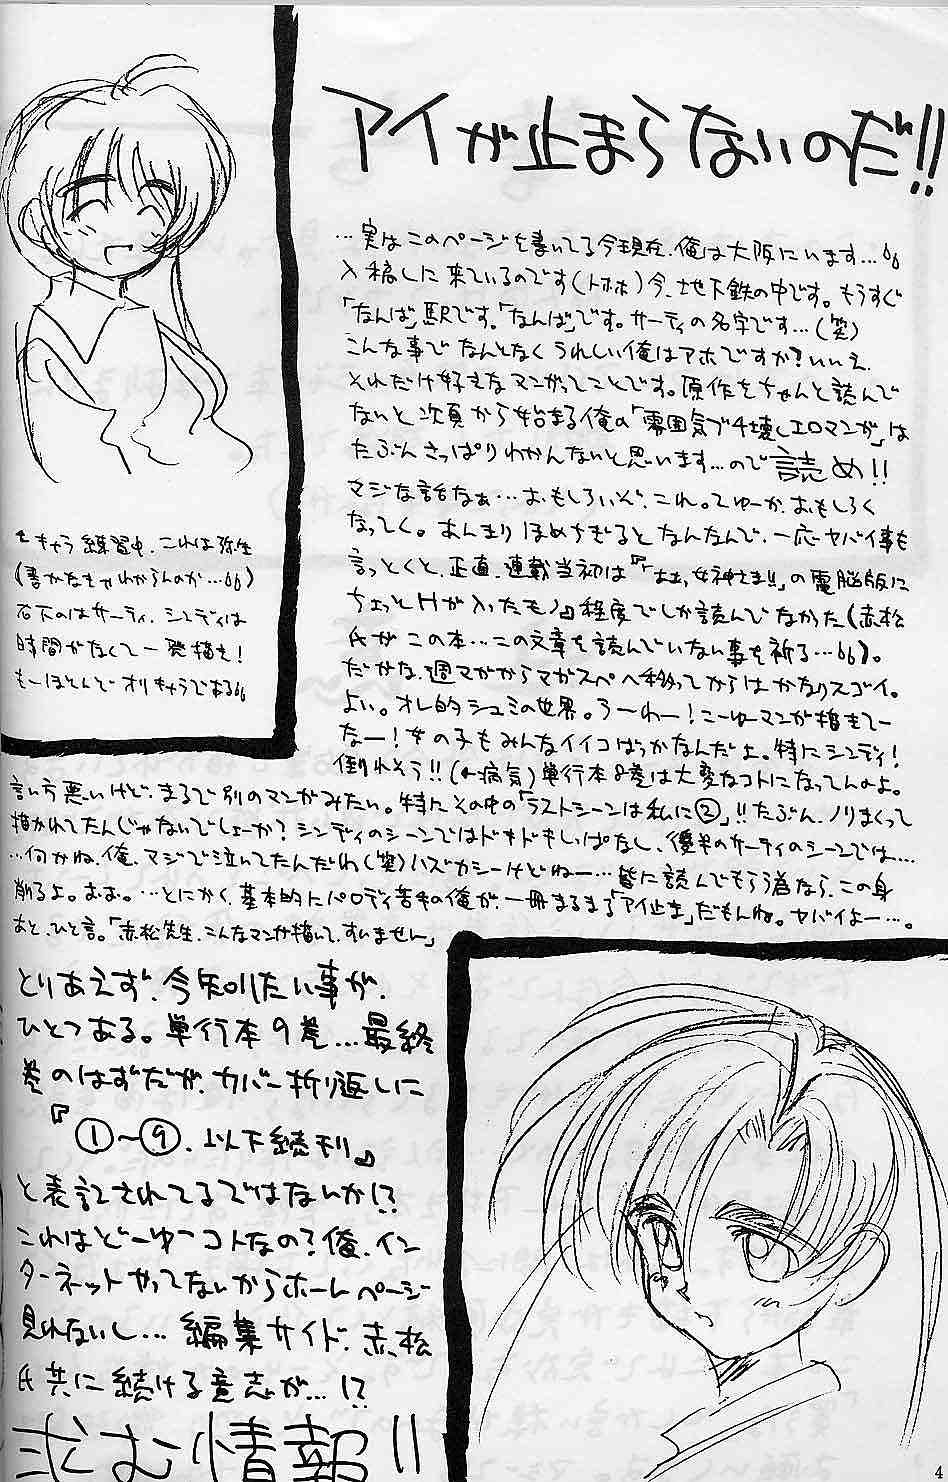 アイが止まらないのだ!!
…実はこのページを書いてる今現在、俺は大阪にいます…。
入稿しに来ているのです(トホホ)今、地下鉄の中です。もうすぐ
「なんば」駅です。「なんば」です。サーティの名字です…(笑)
こんな事でなんとなくうれしい俺はアホですか?いいえ、
それだけ好きなマンガってことです。原作をちゃんと読んで
ないと次頁から始まる俺の「雰囲気ブチ壊しエロマンガ」は
たぶんさっぱりわかんないと思います…ので読め!!
マジな話なぁ…おもしろいぞ、これ。てゆーか、おもしろく
なってく。あんまりほめちぎるとなんなんで、一応ヤバイ事も
言っとくと、正直、連載当初は『「ああっ女神さまっ!!」の電脳版に
ちょっとHが入ったモノ』程度でしか読んでなかった(赤松
氏がこの本…この文章を読んでいない事を祈る…)。
だがな、週マガからマガスペへ移ってからはかなりスゴイ。
よい。オレ的シュミの世界。うーわー!こーゆーマンガ描きてー
なー!女の子もみんなイイコばっかなんだよ。特にシンディ!
倒れそう!!(←病気)単行本8巻は大変なコトになってんのよ。
言い方悪いけど、まるで別のマンガみたい。特にその中の「ラストシーンは私に②」!!たぶん、ノリまくって
描かれてたんじゃないでしょーか?シンディのシーンではドキドキしっぱなし、後半のサーティのシーンでは…
…何かね、俺、マジで泣いてたんだわ(笑)ハズカシーけどねー…皆に読んでもらう為なら、この身
削るよ。ああ。…とにかく、基本的にパロディ苦手の俺が、一冊まるまる「アイ止ま」だもんね。ヤバイよー…。
あと、ひと言。「赤松先生、こんなマンガ描いて、すいません」
←キャラ練習中、これは弥生
(書かなきゃわからんのか…)
右下のはサーティ、シンディは
時間がなくて一発描き!
もーほとんどオリキャラである
とりあえず、今知りたい事が、
ひとつある。単行本9巻…最終
巻のはずだが、カバー折り返しに
『①〜⑨、以下続刊』
と表記されてるではないか!?
これはどーゆーコトなの?俺、イン
ターネットやってないからホームページ
見れないし…編集サイド、赤松
氏共に続ける意志が…!?
求む情報!!
4